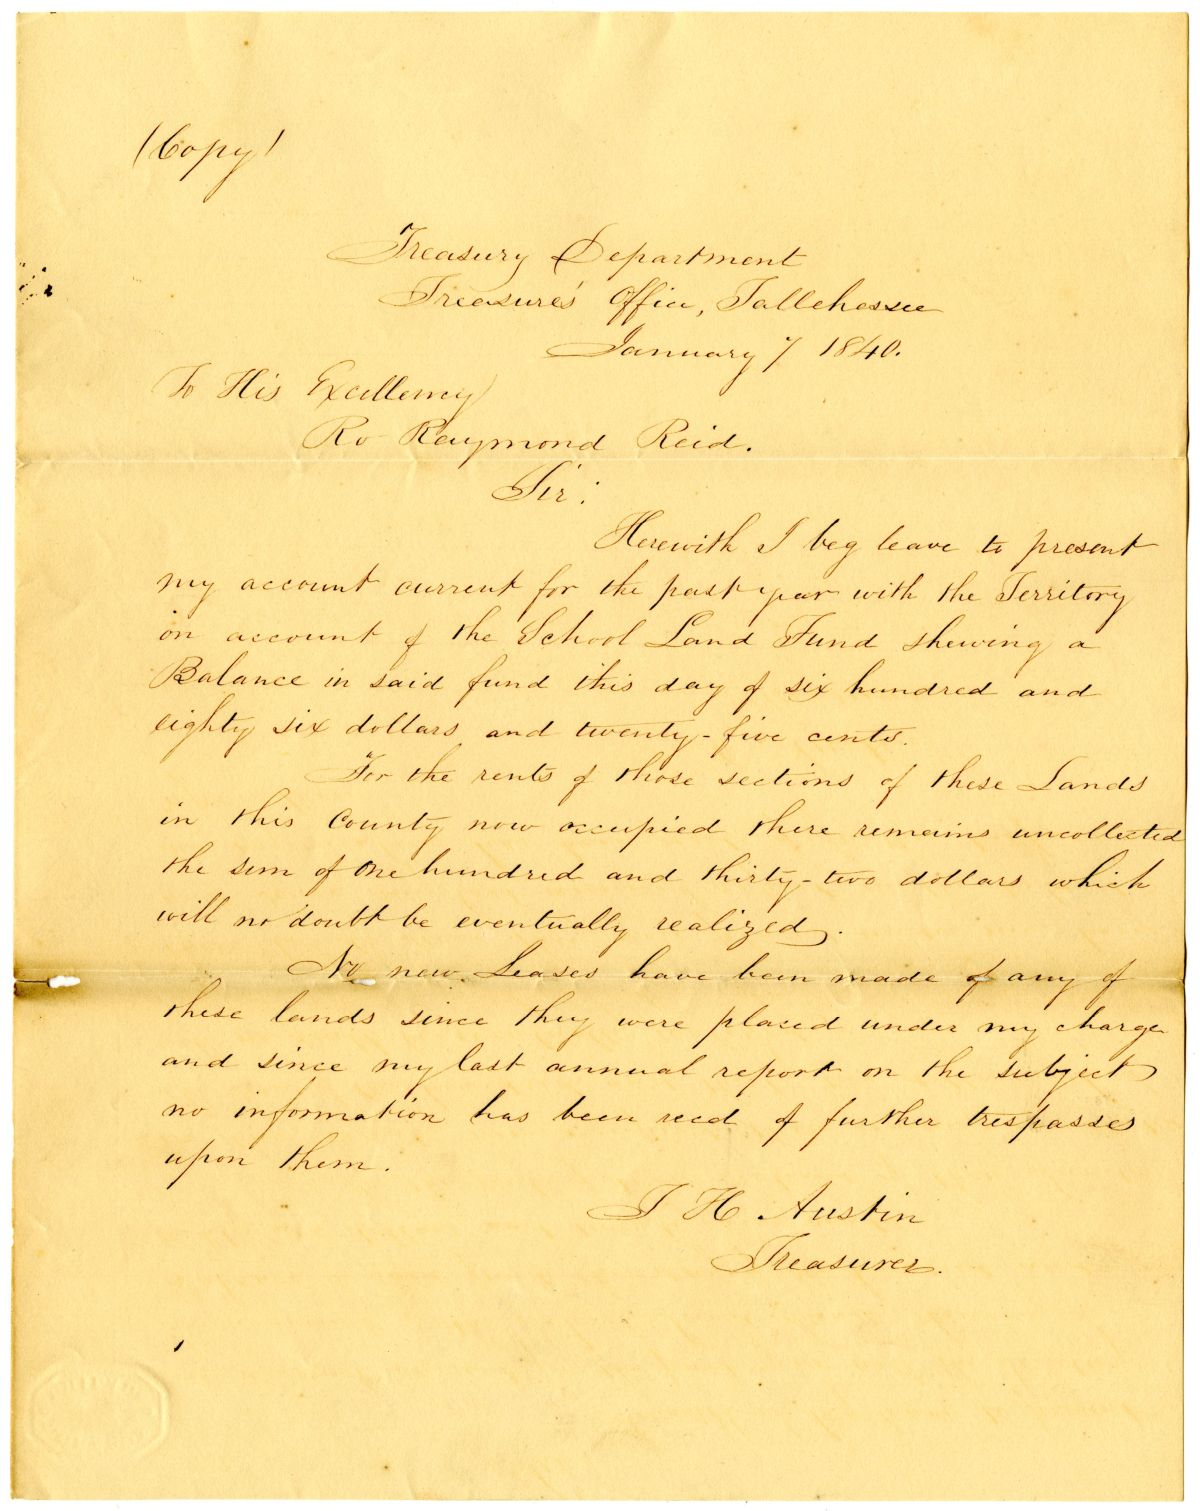 (Copy)
Treasury Department
Treasure's Office, Tallehassee
January 7 1840.
To His Excellency
Ro Raymond Reid.
Sir:
Herewith I beg leave to present
my account current for the past year with the Territory
on account of the School Land Fund shewing a
Balance in said fund this day of six hundred and
eighty six dollars and twenty-five cents.
For the rents of those sections of these Lands
in this County now occupied there remains uncollected
the sum of one hundred and thirty-two dollars which
will no doubt be eventually realized.
No new Leases have been made of any of
these lands since they were placed under my charge
and since my last annual report on the subject
no information has been recd of further trespasses
upon them.
T H Austin
Treasurer.